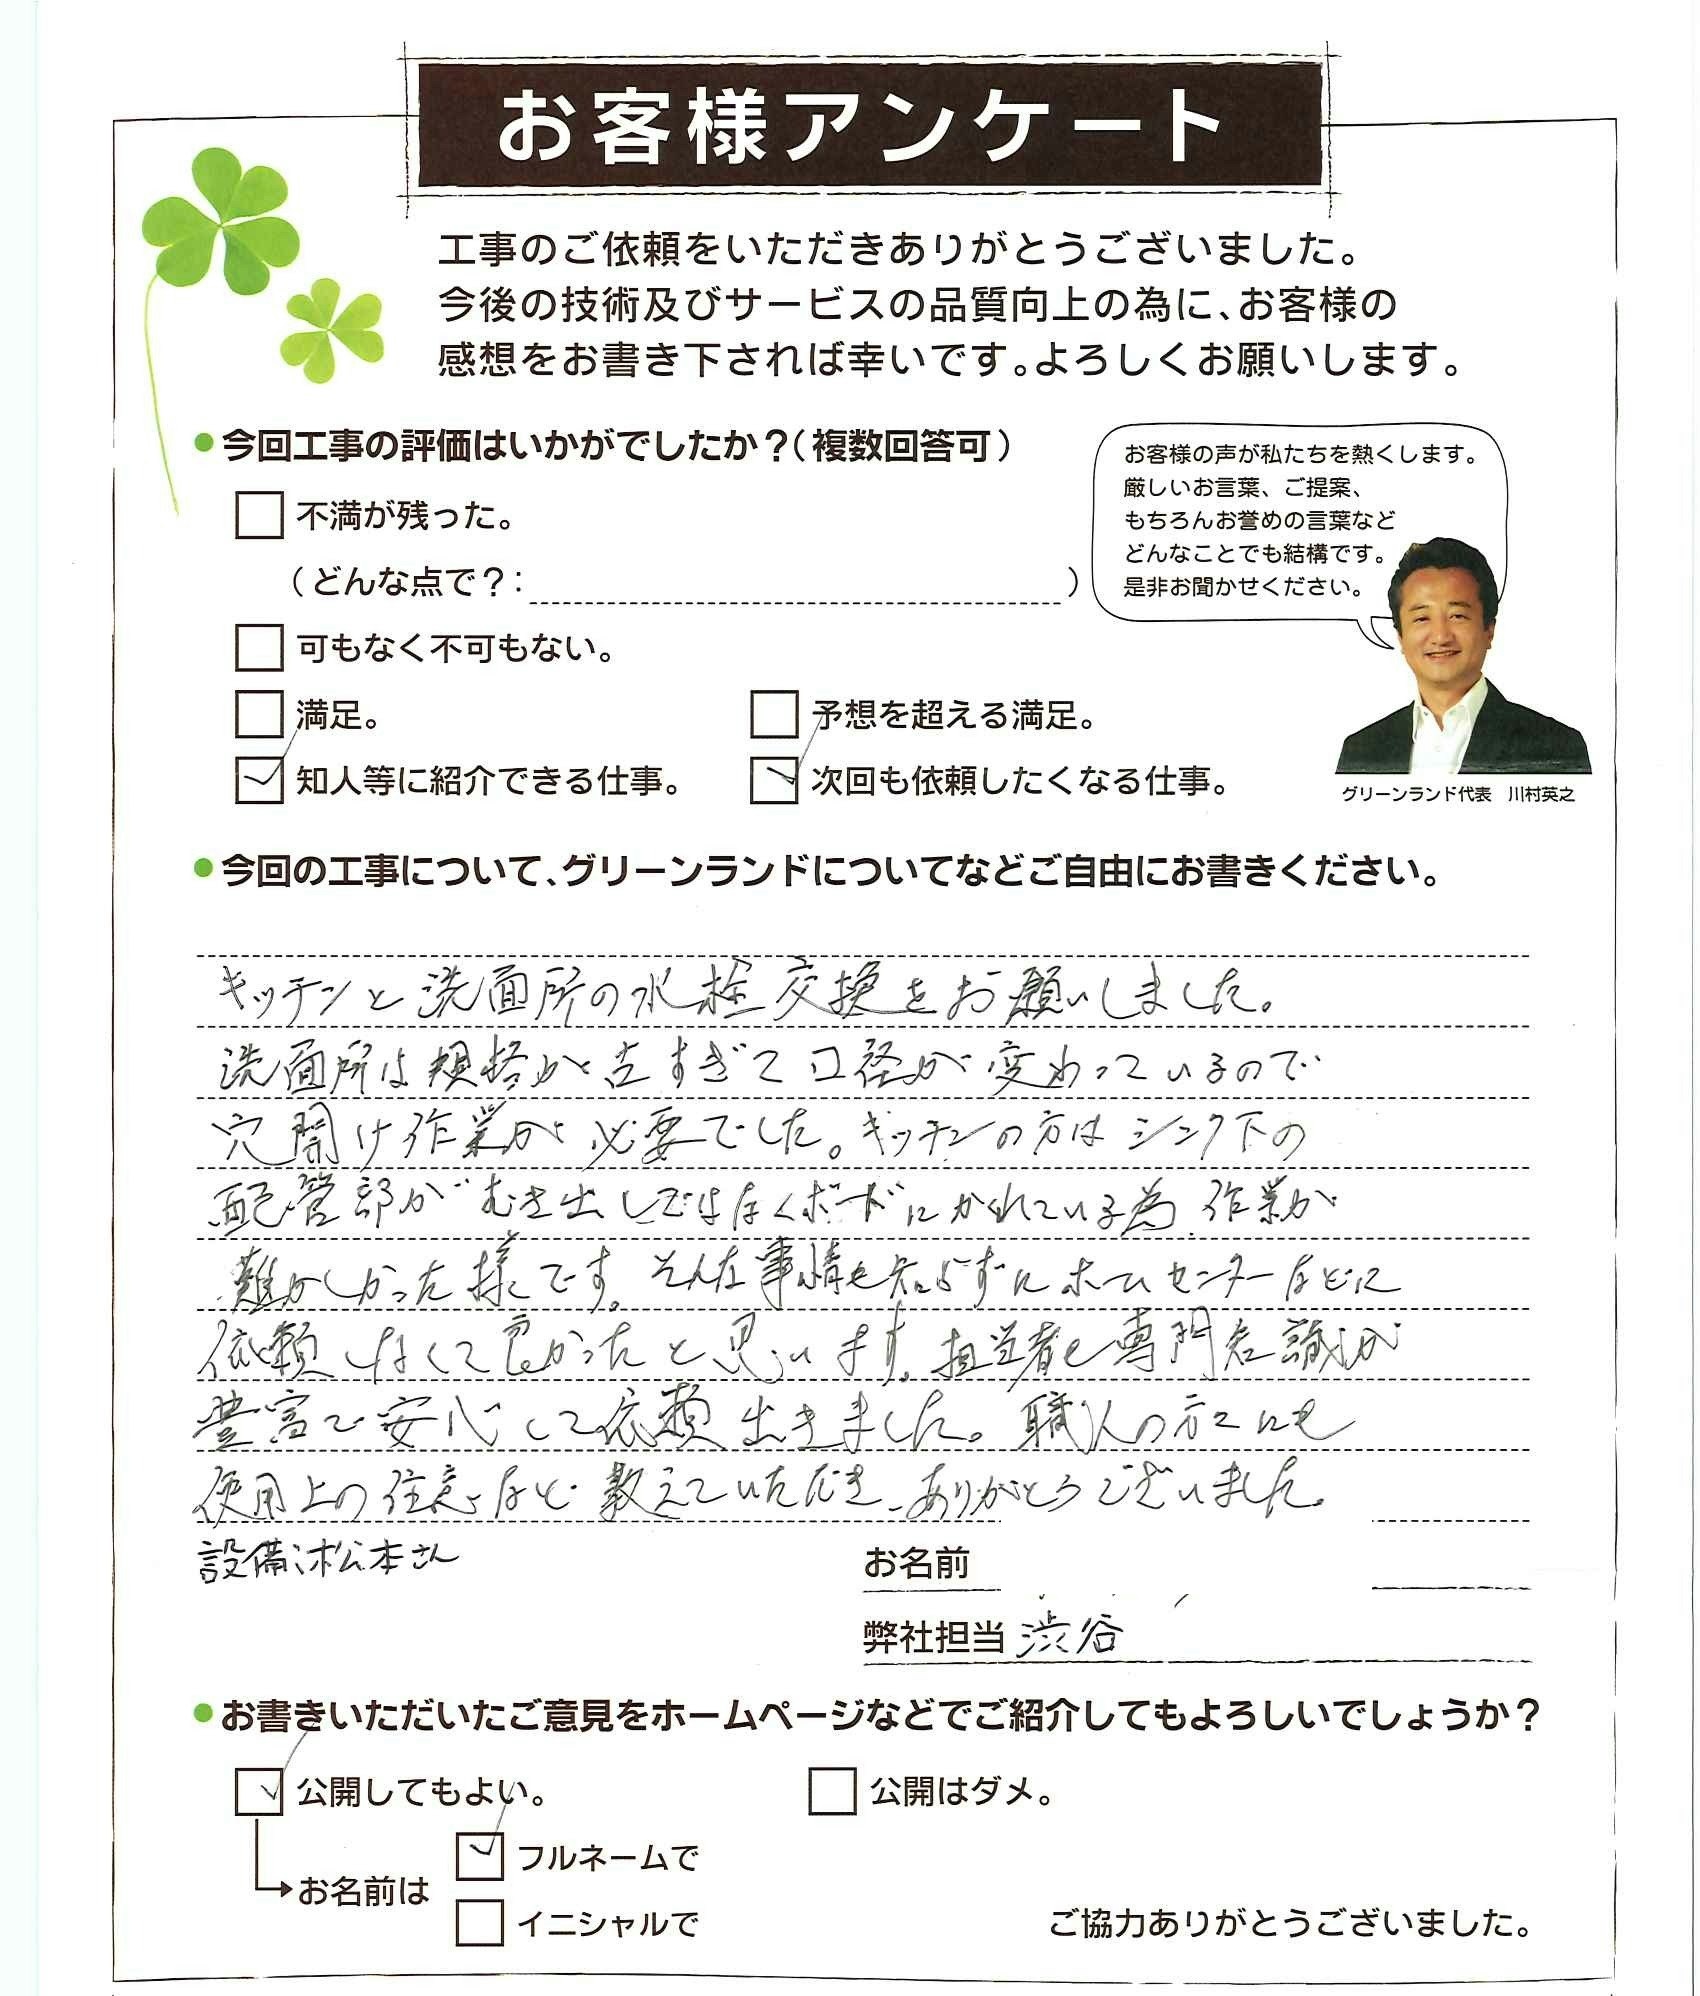 お客様アンケート
工事のご依頼をいただきありがとうございました。
今後の技術及びサービスの品質向上の為に、お客様の
感想をお書き下されば幸いです。よろしくお願いします。
●今回工事の評価はいかがでしたか？（複数回答可）
お客様の声が私たちを熱くします。
厳しいお言葉、ご提案、
もちろんお誉めの言葉など
どんなことでも結構です。
是非お聞かせください。
不満が残った。
（どんな点で？： ）
可もなく不可もない。
満足。 予想を超える満足。
知人等に紹介できる仕事。 次回も依頼したくなる仕事。
グリーンランド代表 川村英之
●今回の工事について、グリーンランドについてなどご自由にお書きください。
キッチンと洗面所の水栓交換をお願いしました。
洗面所は規格が古すぎて口径が変わっているので
穴開け作業が必要でした。キッチンの方はシンク下の
配管部がむき出しではなくボードにかくれている為、作業が
難かしかった様です。そんな事情も知らずにホームセンターなどに
依頼しなくて良かったと思います。担当者も専門知識が
豊富で安心して依頼出きました。職人の方々にも
使用上の注意など教えていただき、ありがとうございました。
設備:松本さん
お名前
弊社担当 渋谷
●お書きいただいたご意見をホームページなどでご紹介してもよろしいでしょうか？
公開してもよい。 公開はダメ。
お名前は フルネームで
イニシャルで
ご協力ありがとうございました。